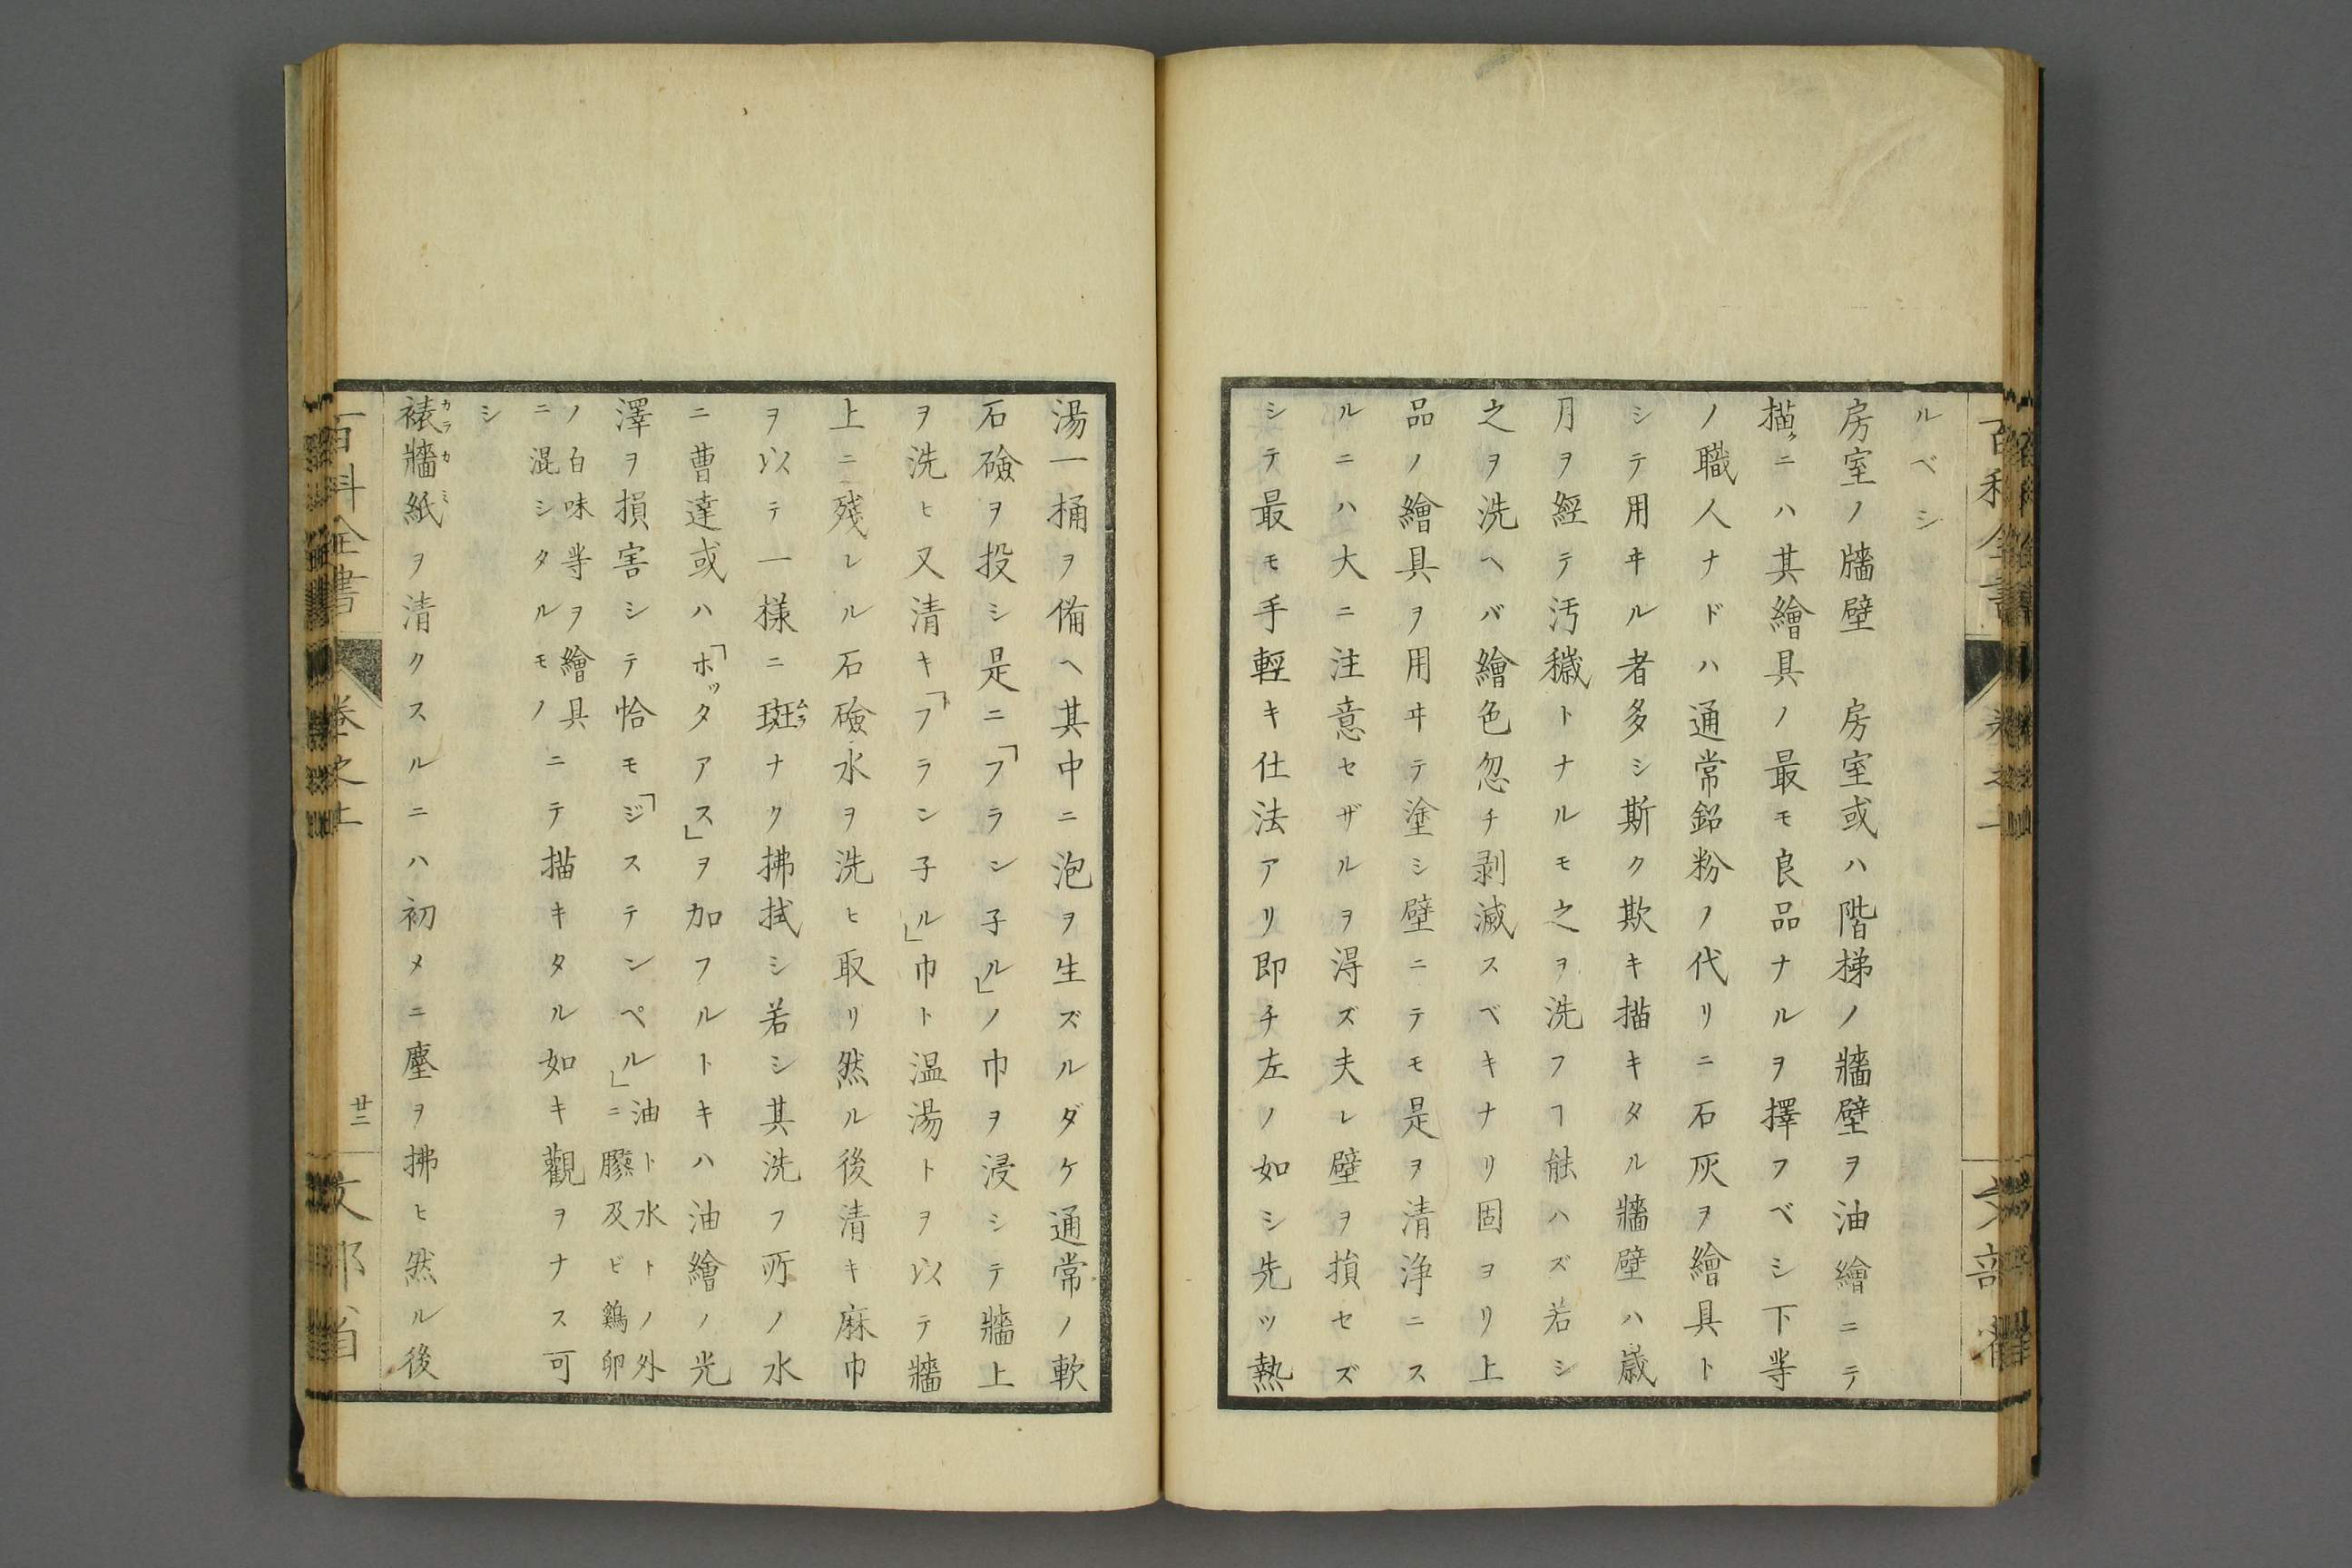 ルベシ
房室ノ牆壁　房室或ハ階梯ノ牆壁ヲ油繪ニテ
描クニハ其繪具ノ最モ良品ナルヲ擇フベシ下等
ノ職人ナドハ通常鉛粉ノ代リニ石灰ヲ繪具ト
シテ用ヰル者多シ斯ク欺キ描キタル牆壁ハ歳
月ヲ經テ汚穢トナルモ之ヲ洗フヿ能ハズ若シ
之ヲ洗ヘバ繪色忽チ剥滅スベキナリ固ヨリ上
品ノ繪具ヲ用ヰテ塗シ壁ニテモ是ヲ清浄ニス
ルニハ大ニ注意セザルヲ得ズ夫レ壁ヲ損セズ
シテ最モ手輕キ仕法アリ即チ左ノ如シ先ツ熱
湯一桶ヲ備ヘ其中ニ泡ヲ生ズルダケ通常ノ軟
石鹼ヲ投シ是ニ「フラン子ル」ノ巾ヲ浸シテ牆上
ヲ洗ヒ又清キ「フラン子ル」巾ト温湯トヲ以テ牆
上ニ殘レル石鹼水ヲ洗ヒ取リ然ル後清キ麻巾
ヲ以テ一様ニ斑ムラナク拂拭シ若シ其洗フ所ノ水
ニ曹達或ハ「ホッタアス」ヲ加フルトキハ油繪ノ光
澤ヲ損害シテ恰モ「ジステンペル」油ト水トノ外ニ膠及ビ鷄卵
ノ白味等ヲ繪具ニ混シタルモノニテ描キタル如キ觀ヲナス可
シ
裱牆紙カラカミヲ清クスルニハ初メニ塵ヲ拂ヒ然ル後
百科全書
卷之上
廿二
文部省